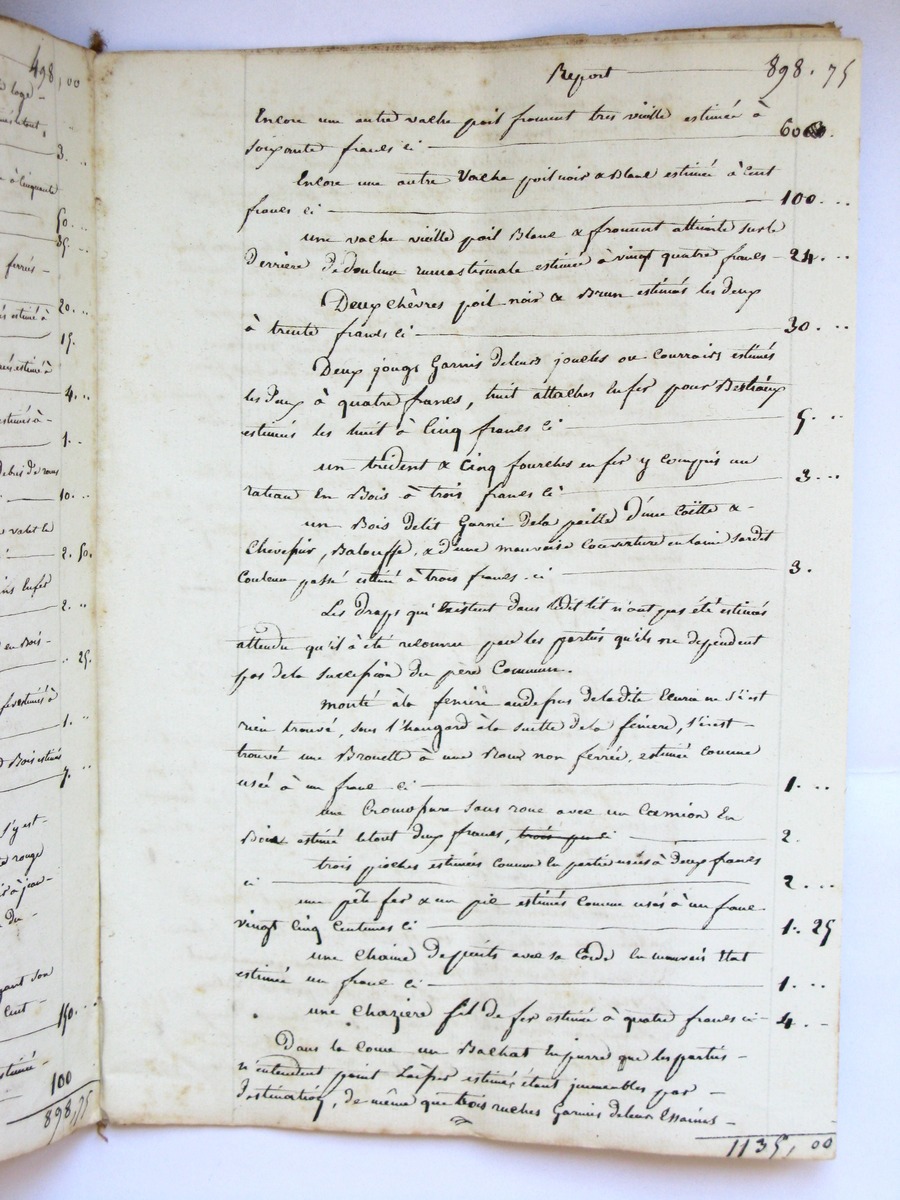 498,00
loge -
3. ..
à cinquante
50. ..
35. ..
ferrés -
20. ..
estimé à
15.
estimé à
4. ..
estimés à -
1. ..
debris de roues
10. ..
valet le
2. 50.
en fer
2. ..
en Bois -
.. 25.
estimés à
1. ..
Bois estimé
7. ..
s'y est -
rouge
du -
ayant son
cent -
150. ..
estimée -
100
898,75
Report 898. 75
Encore une autre vache poil froment tres vieille estimée à
soixante francs ci 60
Encore une autre Vache poil noir & Blanc estimée à Cent
francs ci 100. ..
une vache vieille poil Blanc & froment atteinte sur le
derriere de douleur rumastismale estimée à vingt quatre francs - 24. ..
Deux chèvres poil noir & Brun estimés les deux
à trente francs ci 30. ..
Deux jougs Garnis de leurs joucles ou Courroies estimés
les Deux à quatre francs, huit attaches en fer pour Bestiaux
estimés les huit à Cinq francs ci 5. ..
un trident & Cinq fourches en fer y compris un
rateau En Bois à trois francs ci 3. ..
un Bois de lit Garni de la paille d'une Coëtte & -
Chevessier, Balouffe, & d'une mauvaise Couverture en laine
Couleur passé estimé à trois francs. ci 3.
Les draps qui Existent dans ledit lit n'ont pas été estimés
attendu qu'il à été reconnu par les parties qu'ils ne dependent
pas de la succession du père Commun.
monté à la feniere au dessus de la dite Ecurie ne s'i est
rien trouvé, sous l'hangard à la suitte de la feniere, s'i est -
trouvé une Brouette à une Roux non ferrée, estimée comme
usée à un franc ci 1. ..
une sans roue avec un Camion En
Bois estimé le tout deux francs, 2.
trois pioches estimées comme en partie usés à Deux francs
ci 2. ..
une pèle fer & un pic estimés comme usés à un franc
vingt Cinq Centimes ci 1. 25
une Chaine de puits avec sa Corde En mauvais Etat
estimée un franc ci 1. ..
une Chaziere fil de fer estimée à quatre francs ci - 4. -
Dans la Cour un Bachat En pierre que les parties -
n'entendent point laisser estimer étant immeubles par -
Destination, de même que trois ruches Garnies de leurs Essaims -
1135, 00